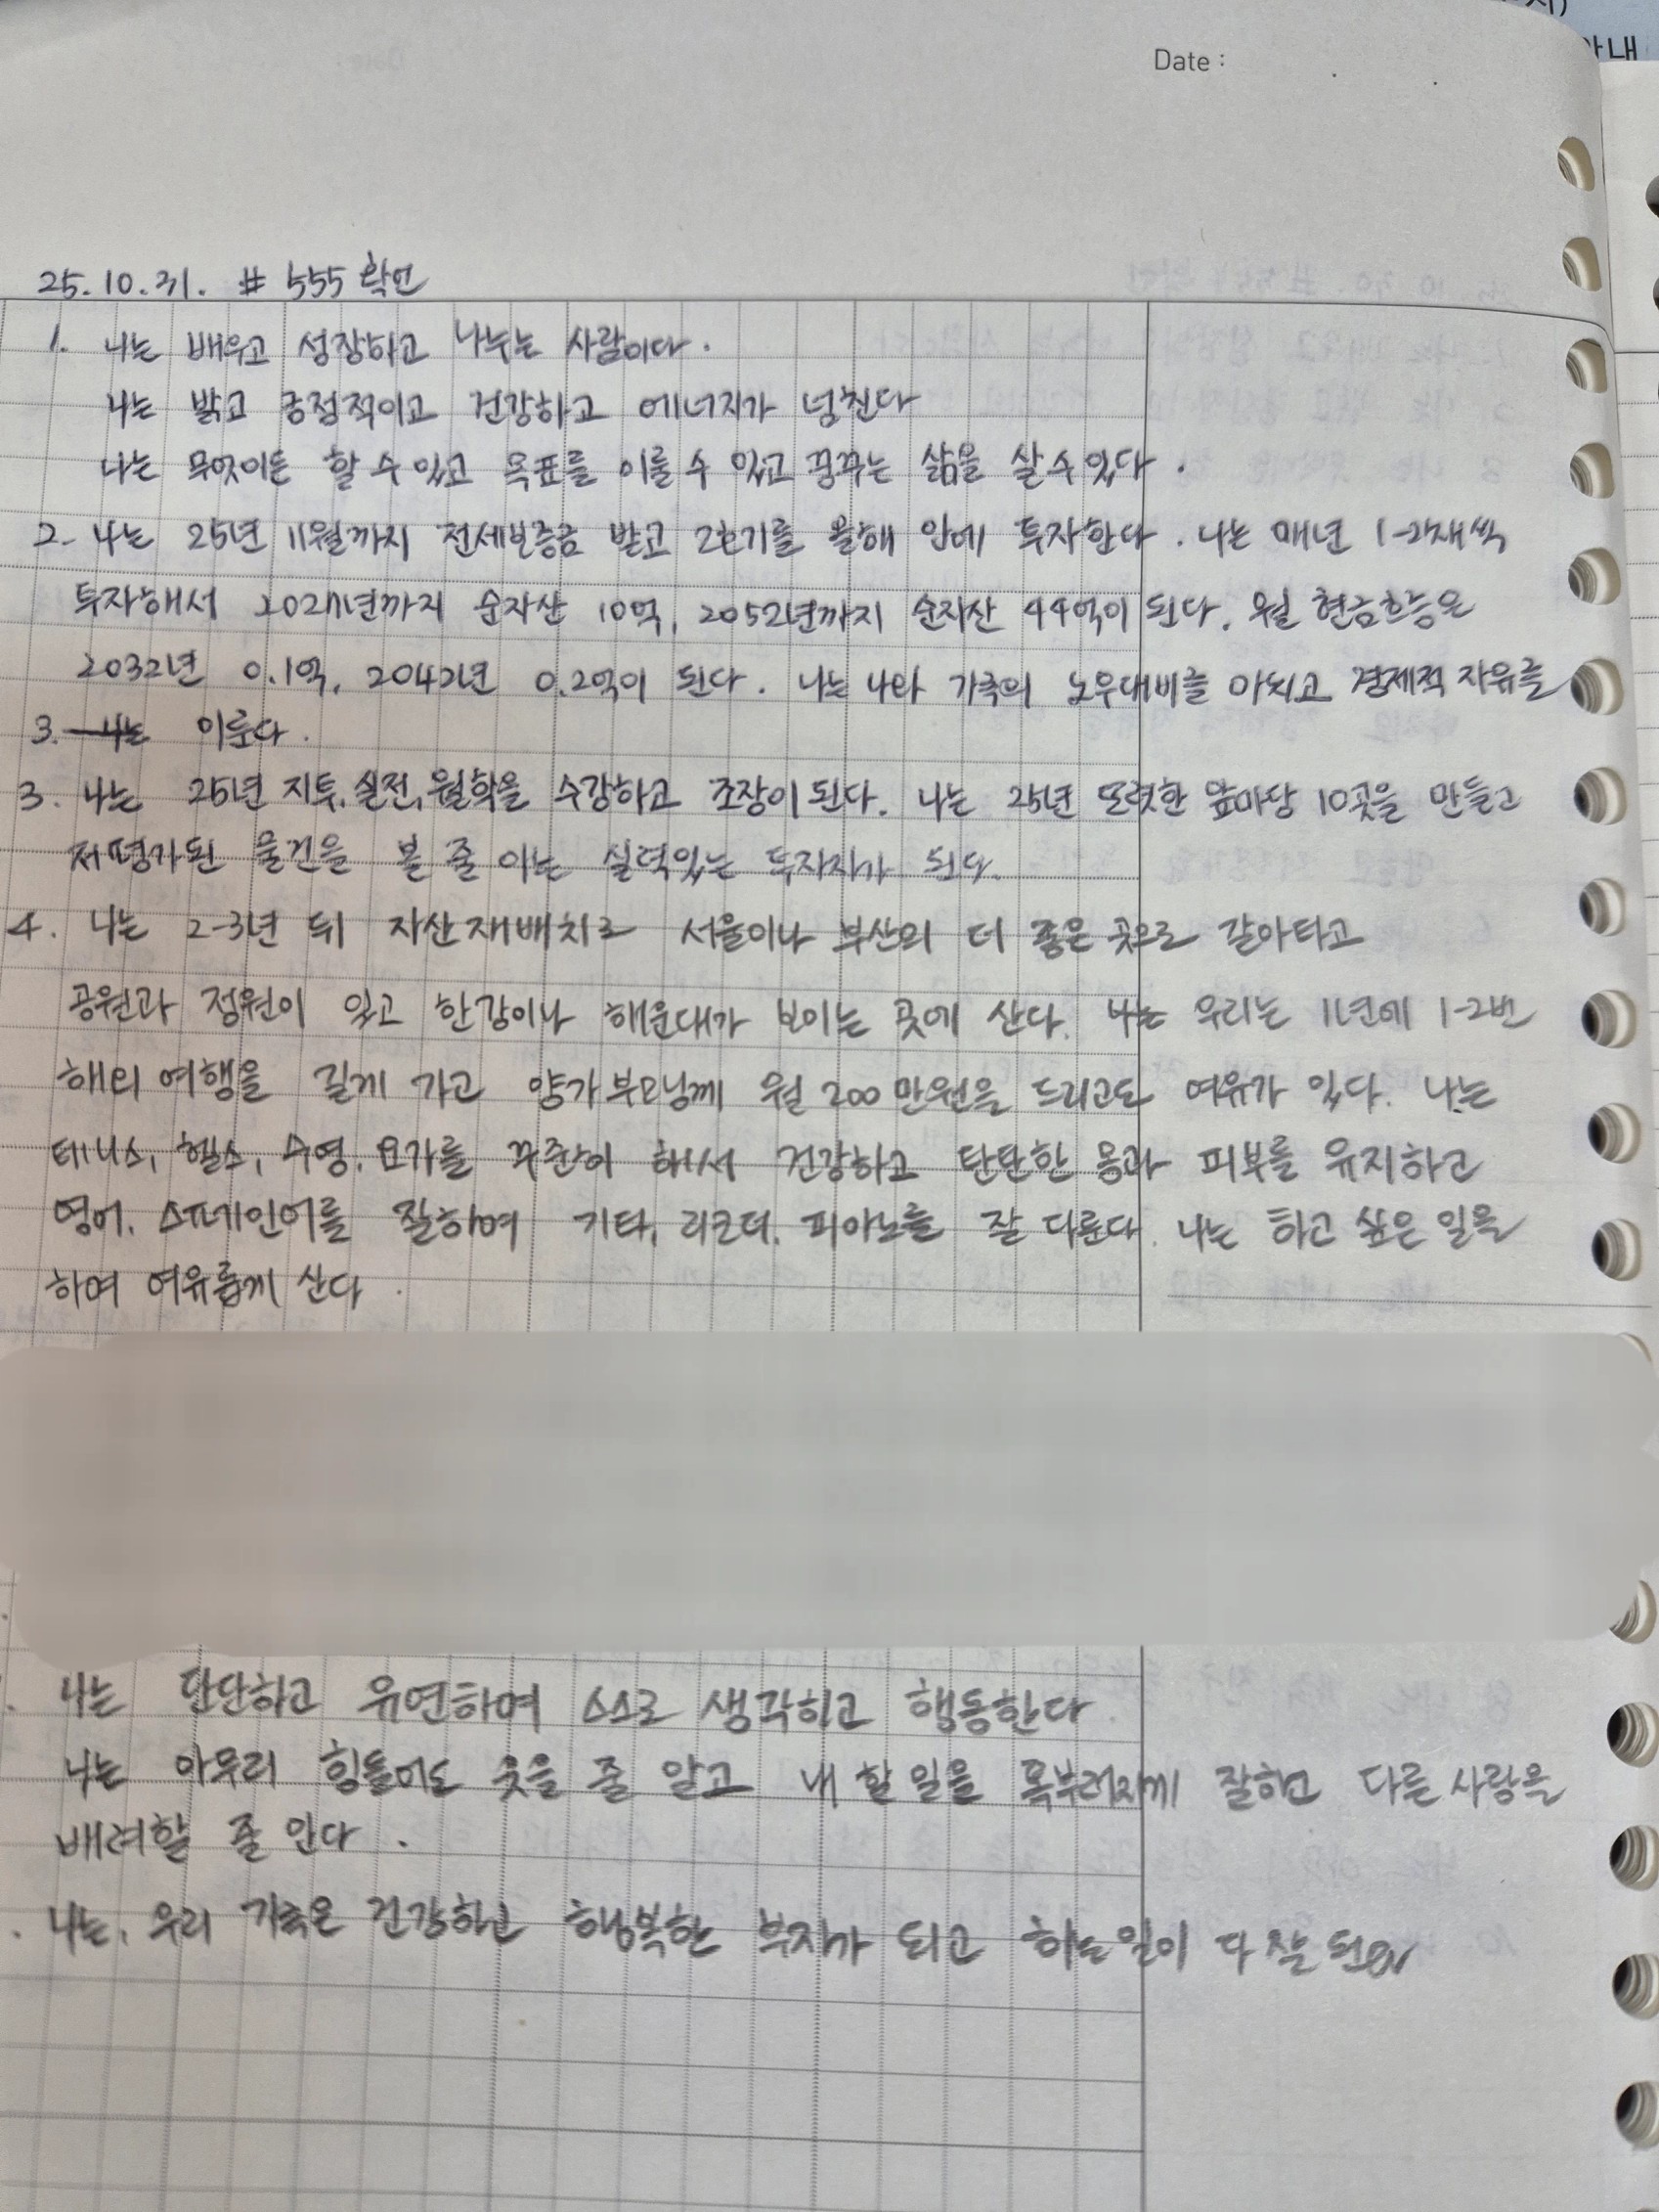 Date :
25.10.31. # 555 확언
1. 나는 배우고 성장하고 나누는 사람이다.
나는 밝고 긍정적이고 건강하고 에너지가 넘친다
나는 무엇이든 할 수 있고 목표를 이룰 수 있고 꿈꾸는 삶을 살 수 있다.
2. 나는 25년 11월까지 전세보증금 받고 2호기를 올해 안에 투자한다. 나는 매년 1-2채씩
투자해서 2027년까지 순자산 10억, 2052년까지 순자산 44억이 된다. 월 현금흐름은
2032년 0.1억, 2042년 0.2억이 된다. 나는 나와 가족의 노후대비를 마치고 경제적 자유를
3. 나는 이룬다.
3. 나는 25년 지투, 실전, 월학을 수강하고 조장이 된다. 나는 25년 또렷한 앞마당 10곳을 만들고
저평가된 물건을 볼 줄 아는 실력있는 투자자가 된다.
4. 나는 2-3년 뒤 자산재배치로 서울이나 부산의 더 좋은 곳으로 갈아타고
공원과 정원이 있고 한강이나 해운대가 보이는 곳에 산다. 나는 우리는 1년에 1-2번
해외여행을 길게 가고 양가부모님께 월 200만원을 드리고도 여유가 있다. 나는
테니스, 헬스, 수영, 요가를 꾸준히 해서 건강하고 탄탄한 몸과 피부를 유지하고
영어, 스페인어를 잘하며 기타, 리코더, 피아노를 잘 다룬다. 나는 하고 싶은 일을
하며 여유롭게 산다.
나는 단단하고 유연하며 스스로 생각하고 행동한다.
나는 아무리 힘들어도 웃을 줄 알고 내 할 일을 똑부러지게 잘하고 다른 사람을
배려할 줄 안다.
나는, 우리 가족은 건강하고 행복한 부자가 되고 하는 일이 다 잘 된다